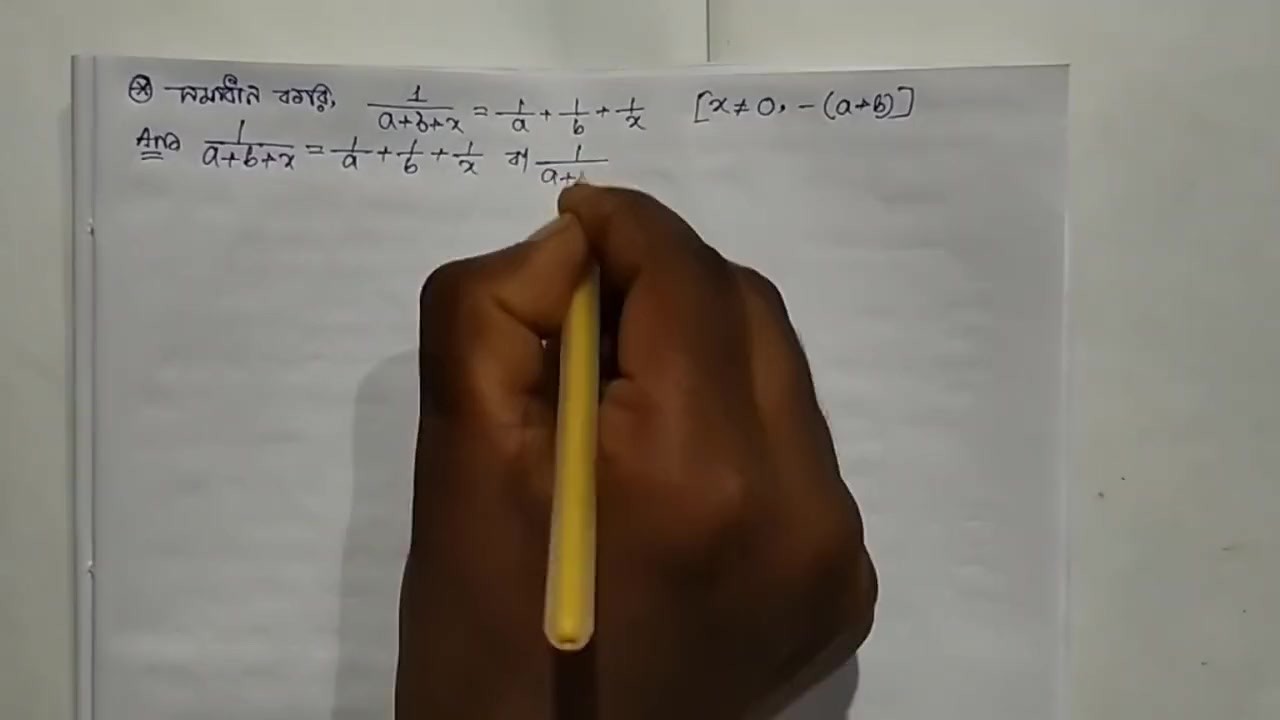 ⊛ সমাধান করি, 1/(a+b+x) = 1/a + 1/b + 1/x [x ≠ 0, -(a+b)]
Ans 1/(a+b+x) = 1/a + 1/b + 1/x বা 1/(a+